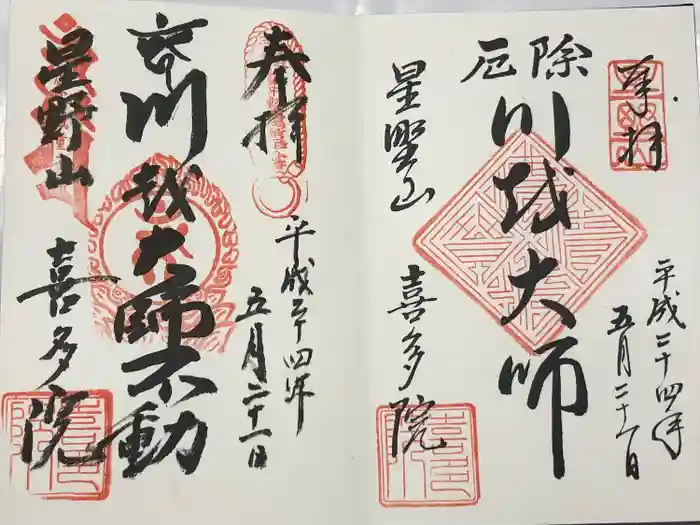 奉拝
除厄
川越大師
星野山
喜多院
平成二十四年
五月二十一日
奉拝
川越大師不動
星野山
喜多院
平成二十四年
五月二十一日